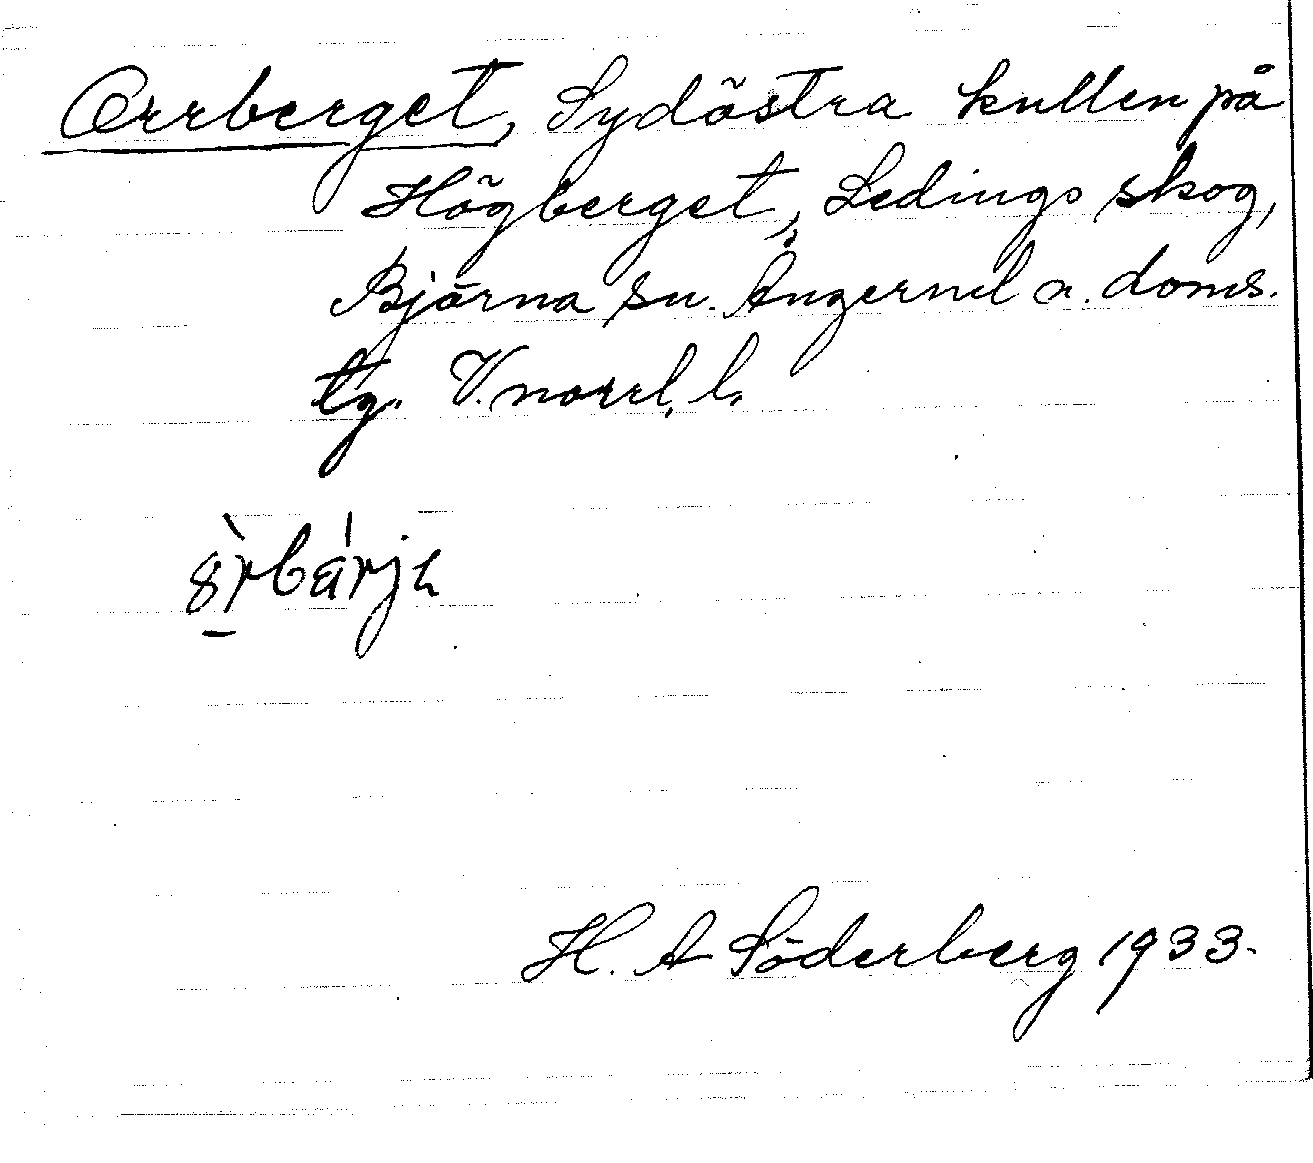 Orrberget, Sydöstra kullen på
Högberget, Ledings skog,
Björna sn. Ångermel a. doms.
tg. V.norrl. l.
H. A Söderberg 1933.